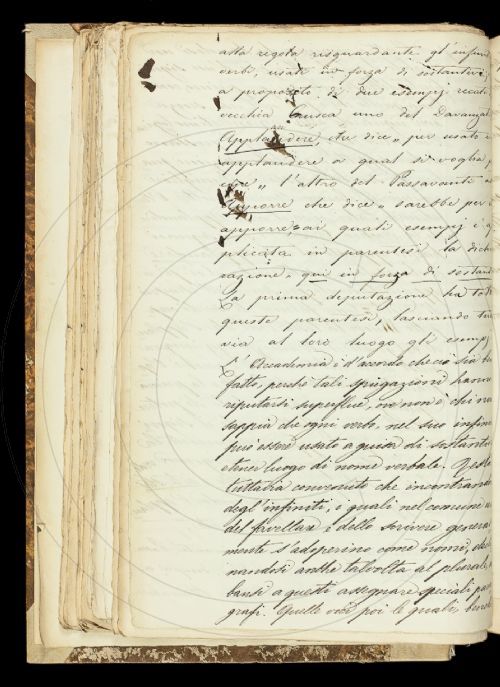 alla regola risguardante gl'infini
verbi, usati in forza di sostantivi,
a proposito di due esempj recati
vecchia Crusca uno del Davanzat
Applaudere, che dice „ per usato
applaudere a qual si voglia,
„ l'altro del Passavanti a
Apporre che dice „ sarebbe per
apporre ai quali esempj è
plicata in parentesi la dichi
razione „ qui in forza di sostant
La prima deputazione ha tolt
queste parentesi, lasciando tu
via al loro luogo gli esempj
L'Accademia è d'accordo che ciò sia
fatto, perchè tali spiegazioni hanno
riputarsi superflue, ove non è chi no
sappia che ogni verbo, nel suo infini
può essere usato a guisa di sostanti
e tener luogo di nome verbale.
tuttavia convenuto che incontrando
degl'infiniti, i quali nel comune
del favellare e dello scrivere genera
mente s'adoperino come nomi,
nandosi anche talvolta al plurale,
bansi a questi assegnare speciali para
grafi. Quelle voci poi le quali,